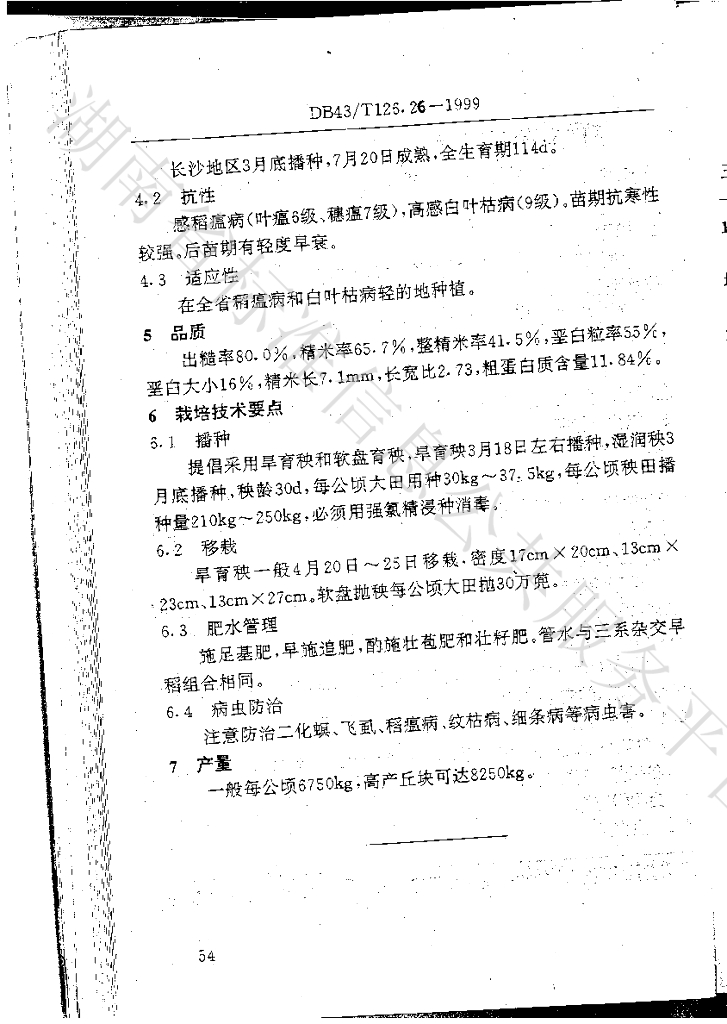 DB43/T125.26—1999
长沙地区3月底播种,7月20日成熟,全生育期114d。
4.2 抗性
感稻瘟病(叶瘟6级、穗瘟7级),高感白叶枯病(9级)。苗期抗寒性
较强。后苗期有轻度早衰。
4.3 适应性
在全省稻瘟病和白叶枯病轻的地种植。
5 品质
出糙率80.0%,精米率65.7%,整精米率41.5%,垩白粒率55%,
垩白大小16%,精米长7.1mm,长宽比2.73,粗蛋白质含量11.84%。
6 栽培技术要点
6.1 播种
提倡采用旱育秧和软盘育秧,旱育秧3月18日左右播种,湿润秧3
月底播种、秧龄30d,每公顷大田用种30kg～37.5kg,每公顷秧田播
种量210kg～250kg,必须用强氯精浸种消毒。
6.2 移栽
旱育秧一般4月20日～25日移栽.密度17cm×20cm、13cm×
23cm、13cm×27cm。软盘抛秧每公顷大田抛30万蔸。
6.3 肥水管理
施足基肥,早施追肥,酌施壮苞肥和壮籽肥。管水与三系杂交早
稻组合相同。
6.4 病虫防治
注意防治二化螟、飞虱、稻瘟病、纹枯病、细条病等病虫害。
7 产量
一般每公顷6750kg,高产丘块可达8250kg。
54
湖南省标准信息公共服务平台